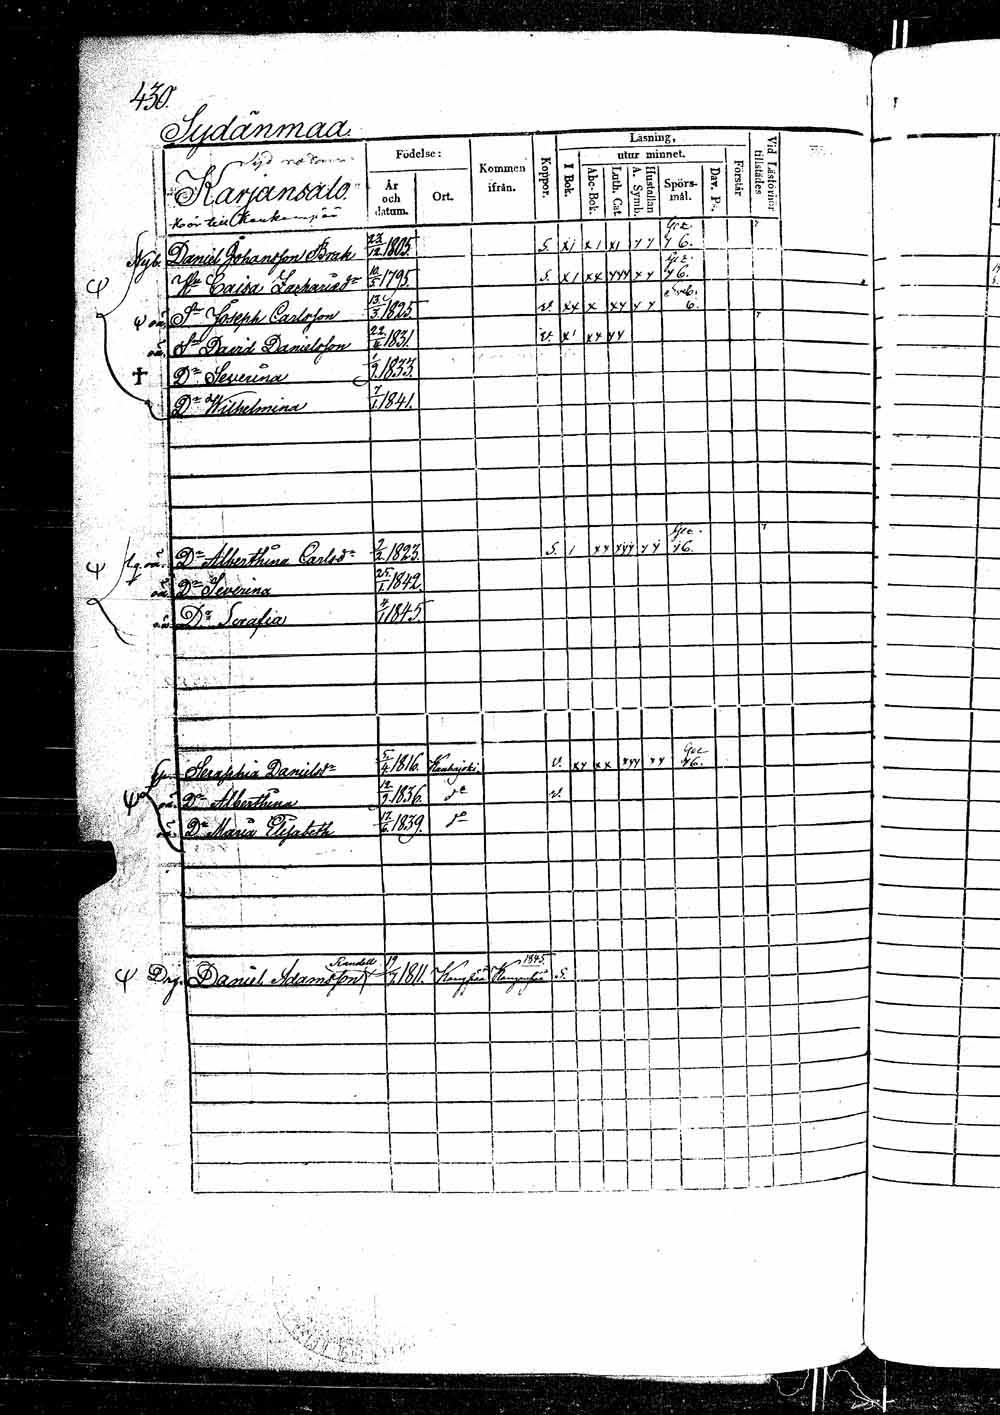 430.
Sydänmaa.
Karjansalo.
Hör till
Födelse:
År och datum.
Ort.
Kommen ifrån.
Koppor.
Läsning,
I Bok.
utur minnet.
Abc-Bok.
Luth. Cat.
A. Symb.
Hustaflan
Spörsmål.
Dav. Ps.
Förstår
Vid Läsförhör tillstädes
Nyb. Daniel Johansson Brak 23/12 1805. S. x1 x1 x1 yy 6.
Hu Caisa Zachariædr 10/5 1795. S. x1 xx yyy xy 6.
Sn Joseph Carlsson 13/3 1825 v. xx x xy yy 6.
Sn David Danielsson 22/6 1831. v. x1 xy yy
Dr Severina 1/9 1833.
Dr Wilhelmina 7/1 1841.
Dr Alberthina Carlsdr 2/2 1823. S. 1 xy yyy yy 6.
Dr Severina 25/1 1842.
Dr Serafia 4/1 1845.
Seraphia Danielsdr 5/4 1816. Kauhajoki v. xy xx xyy yy 6.
Dr Alberthina 12/9 1836. do v.
Dr Maria Elisabeth 17/6 1839. do
Drg. Daniel Adamsson 19 1811. 1845. S.